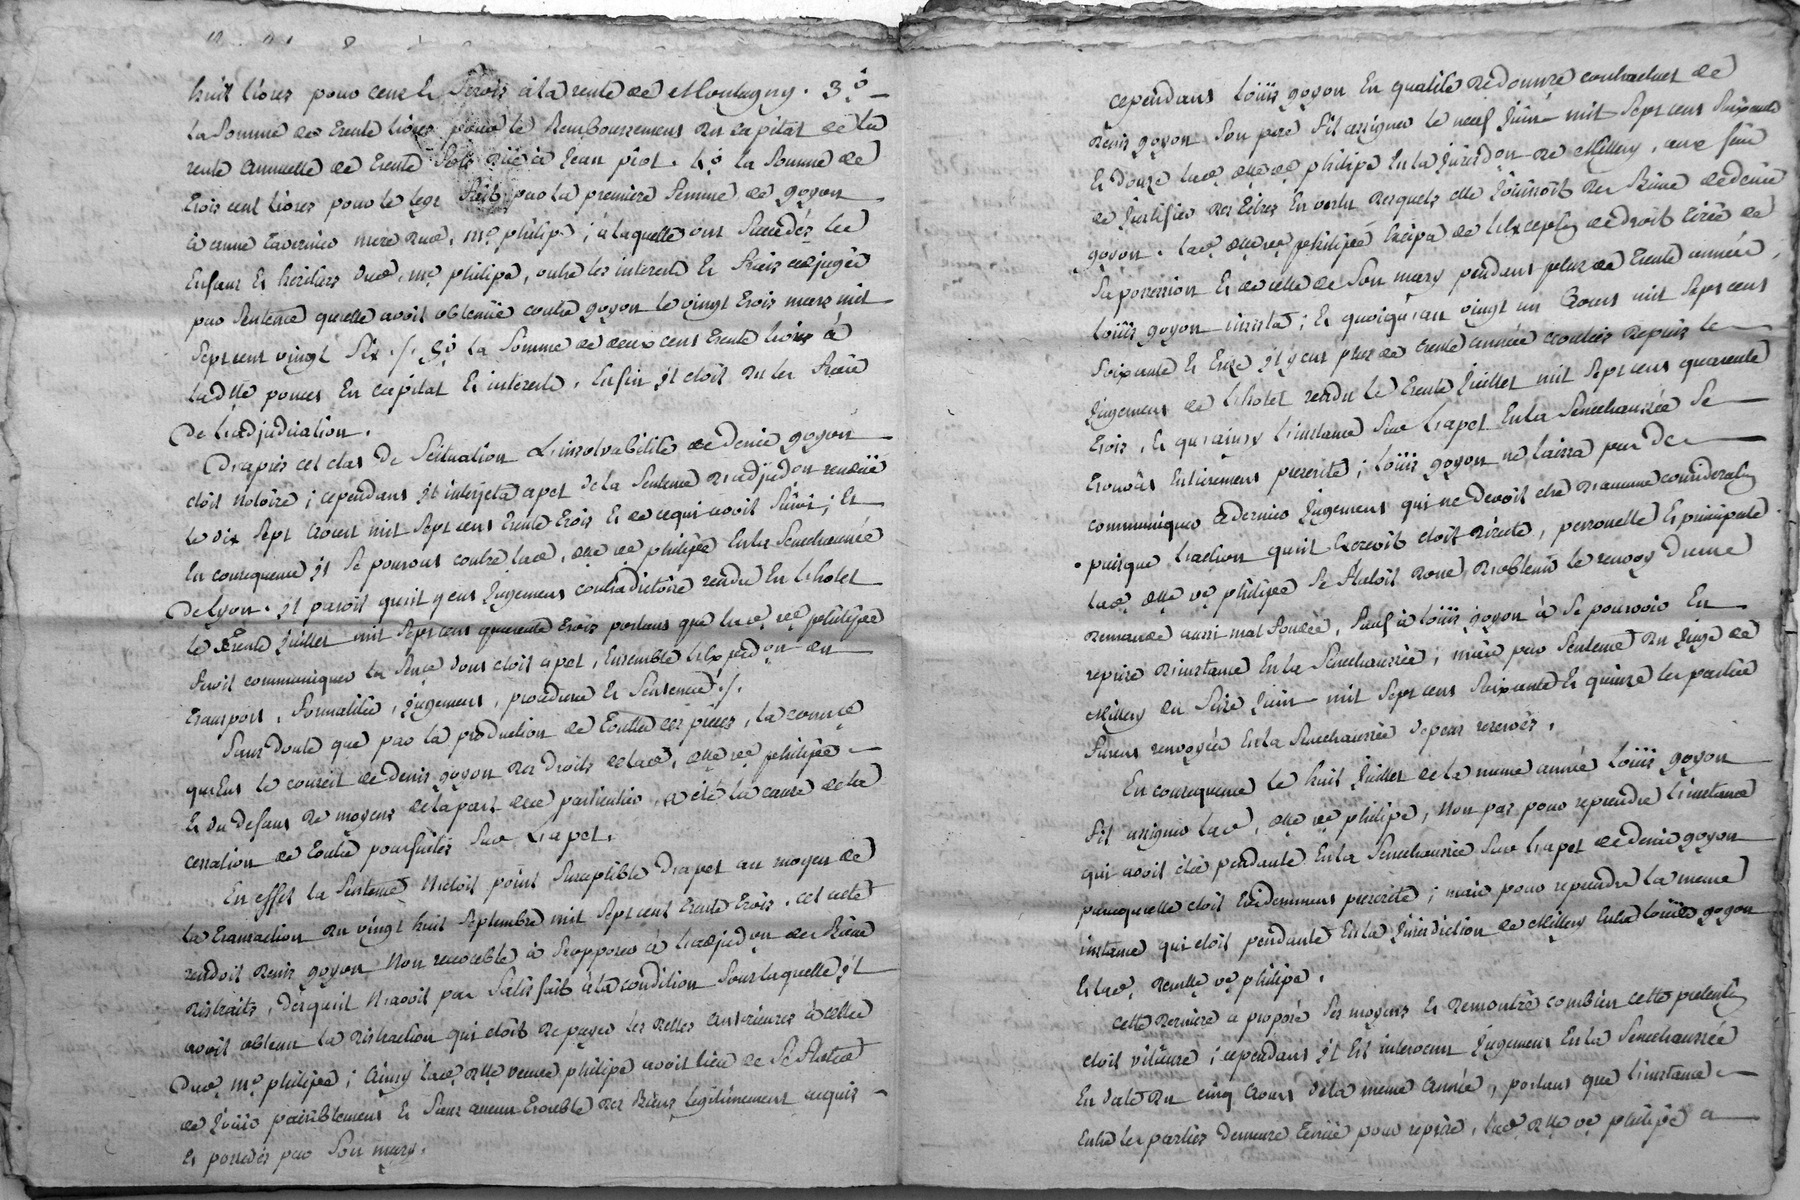 huit livres pour cent le Servis à la rente de Montagny. 3.°
la Somme de trente livres pour le Remboursement du capital de la
rente annuelle de trente Sols düe à Jean piot. 4.° la Somme de
trois cent livres pour le legs fait par la première femme de goyon
à anne tavernier mere dud. m.e philipe; à laquelle ont Succédés les
Enfans Et héritiers dud. m.e philipe, outre les interets Et frais adjugés
par Sentence quelle avoit obtenüe contre goyon le vingt trois mars mil
Sept cent vingt Six ./. 5.° la Somme de deux cent trente livres à
lad.lle ponces En capital Et interets. Enfin il étoit dû les frais
De L'adjudication.
D'après cet état de Scituation L'insolvabilité de denis goyon
étoit notoire; cependant il interjeta apel de la Sentence d'adjud.on rendüe
le dix Sept Aoust mil Sept cent trente trois Et de ce qui avoit Suivi; Et
En consequence il Se pourvut contre lad. d.lle v.e philipe En la Senechaussée
De Lyon. il paroit qu'il y eut Jugement contradictoire rendu En L'hotel
le trente Juillet mil Sept cent quarante trois portant que lad. v.e philipe
Seroit communiquer la Sen.ce dont étoit apel, Ensemble L'Exped.on du
transport, formalités, Jugement, procedure Et Sentence ./.
Sans doute que par la production de toutes ces pièces, la connois.ce
qu'Eut le conseil de denis goyon des droits de lad. d.lle v.e philipe
Et du defaut de moyens de la part de ce particulier, a été la cause de la
cessation de toutes poursuites Sur L'apel.
En effet la Sentence n'étoit point Susceptible D'apel au moyen de
la transaction du vingt huit Septembre mil Sept cent trente trois. cet acte
rendoit denis goyon Non recevable à S'opposer à L'adjud.on des Biens
distraits, dès qu'il n'avoit pas Satisfait à la condition Sous laquelle il
avoit obtenu la distraction qui étoit de payer les dettes anterieures à celles
Dud. m.e philipe; Ainsy lad. d.lle veuve philipe avoit lieu de Se flater
de Jouir paisiblement Et Sans aucun trouble des Biens légitimement acquis
Et possedés par Son mary.
cependant Loüis goyon En qualité de donnataire contractuel de
denis goyon Son pere fit assigner le neuf Juin mil Sept cent Soixante
Et douze lad. d.lle v.e philipe En la Jurisd.on de Millery, aux fins
de Justifier des titres En vertu desquels elle Joüissoit des Biens de denis
goyon. lad. d.lle v.e philipe Excipa de L'Exception de droit tirée de
Sa possession Et de celle de Son mary pendant plus de trente années,
Loüis goyon insista; Et quoiqu'au vingt un Aoust mil Sept cent
Soixante Et treize il y eut plus de trente années écoulées depuis le
Jugement de L'hotel rendu le trente Juillet mil Sept cent quarante
trois, Et qu'ainsy L'instance Sur L'apel En la Senechaussée Se
trouvât Entierement prescrite; Loüis goyon ne laissa pas de
communiquer ce dernier Jugement qui ne devoit être d'aucune consideration
puisque L'action qu'il Exercoit étoit directe, personnelle Et principale.
lad. d.lle v.e philipe Se flatoit donc d'obtenir le renvoy d'une
demande aussi mal fondée, Sauf à Loüis goyon à Se pourvoir En
reprise d'instance En la Senechaussée; mais par Sentence du Juge de
Millery du Seize Juin mil Sept cent Soixante Et quinze les parties
furent renvoyées En la Senechaussée depens reservés.
En consequence le huit Juillet de la meme année Loüis goyon
fit assigner lad. d.lle v.e philipe, Non pas pour reprendre L'instance
qui avoit été pendante En la Senechaussée Sur L'apel de denis goyon
parcequelle étoit Evidemment prescrite; mais pour reprendre la meme
instance qui étoit pendante En la Jurisdiction de Millery Entre Loüis goyon
Et lad. demlle v.e philipe.
cette derniere a proposé Ses moyens Et demontré combien cette pretention
étoit vicieuse; cependant il Est intervenu Jugement En la Senechaussée
En date du cinq Aoust de la meme année, portant que L'instance
Entre les parties demeure tenüe pour reprise, lad. d.lle v.e philipe a